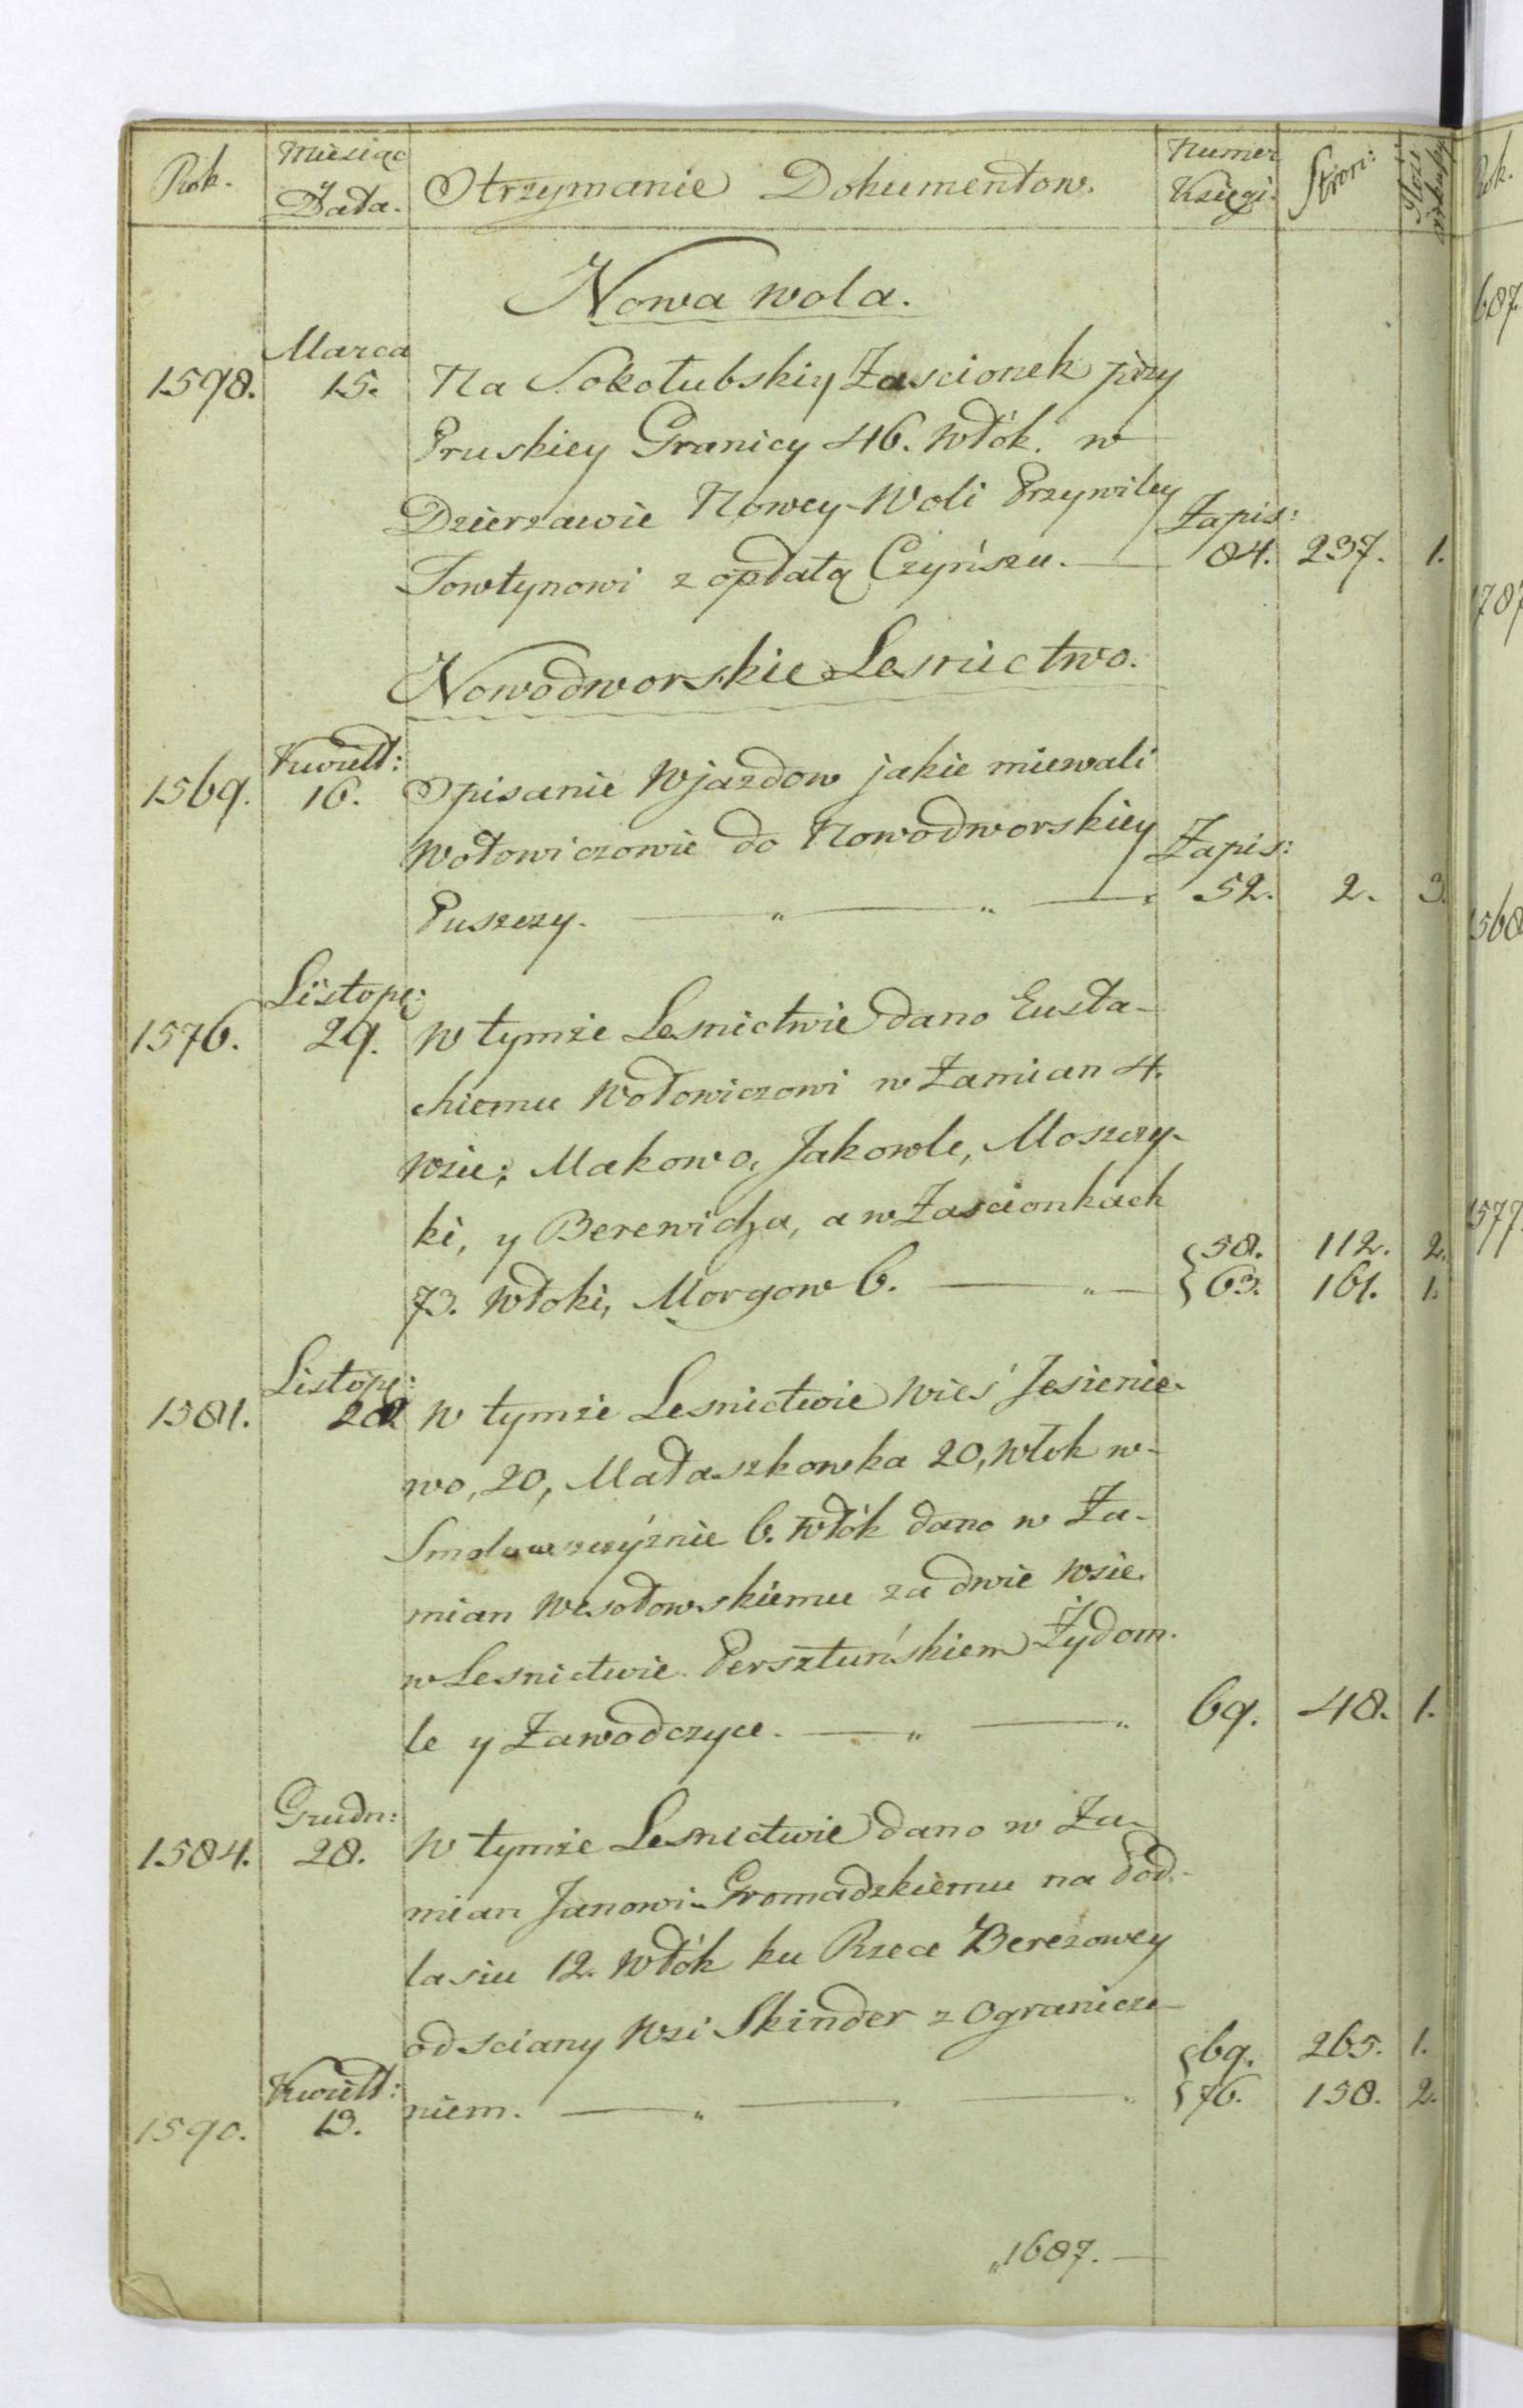 Rok. Miesiąc y Data. Otrzymanie Dokumentow. Numer Księgi. Stron:
Nowa wola.
Marca
1598. 15. Na Sokołubskiy Zascionek przy
Pruskiey Granicy 46. Włók. w
Dzierzawie Nowey-Woli Przywiley Zapis:
Towtynowi z opłatą Czyńszu. 84. 237. 1.
Nowodworskie Lesnictwo.
Kwiet:
1569. 16. Opisanie Wjazdow jakie miewali
Wołowiczowie do Nowodworskiey Zapis:
Puszczy. 52. 2. 3.
Listop:
1576. 29. W tymże Lesnictwie dano Eusta-
chiemu Wołowiczowi w Zamian 4.
Wsie; Makowo, Jakowle, Moszczy-
ki, y Berewidza, a w Zascionkach
73. Włoki, Morgow 6. { 58. 112. 2.
{ 63. 161. 1.
Listop:
1581. W tymże Lesnictwie Wieś Jesienie-
wo, 20, Mataszkowka 20, Włok w
6. Włók dano w Za-
mian Wesołowskiemu za dwie Wsie
w Lesnictwie Persztuńskiem Żydom-
le y Zawodczyce. 69. 48. 1.
Grudn:
1584. 28. W tymże Lesnictwie dano w Za-
mian Janowi Gromadzkiemu na Pod-
lasiu 12. Włók ku Rzece Berezowey
od sciany Wsi Skinder z Ogranicze-
{ 69. 265. 1.
Kwiet:
1590. 13. niem. { 76. 158. 2.
1687.